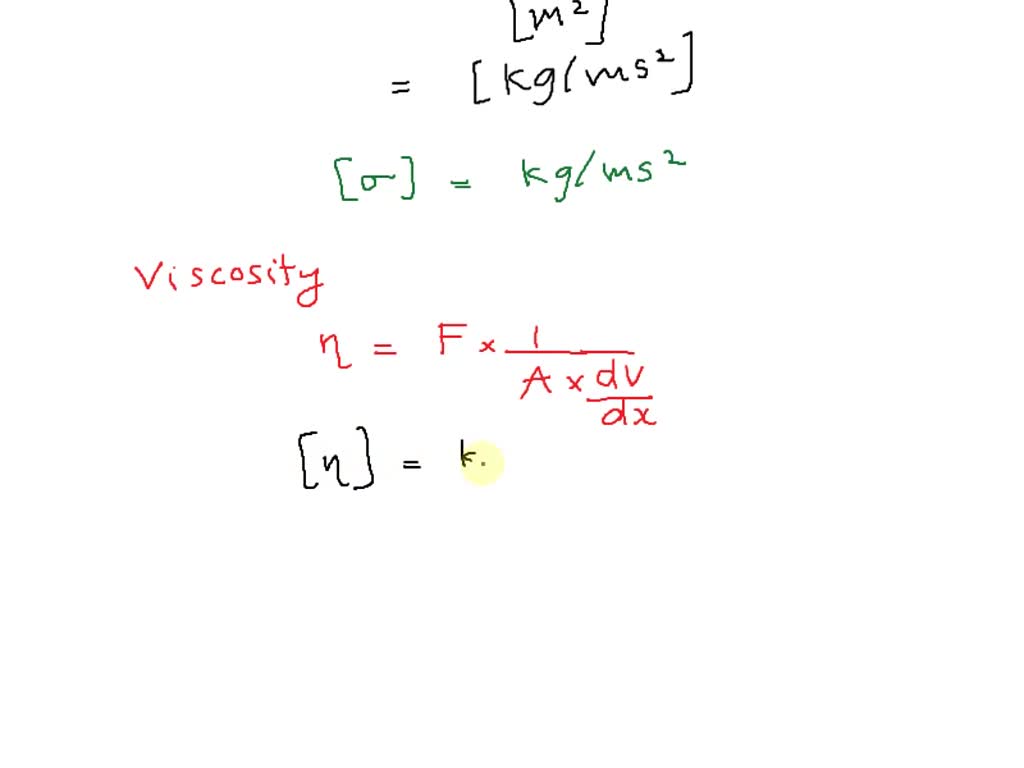 [m²]
= [kg/ms²]
[σ] = kg/ms²
Viscosity
η = F × 1
A × dV
dx
[η] = k.